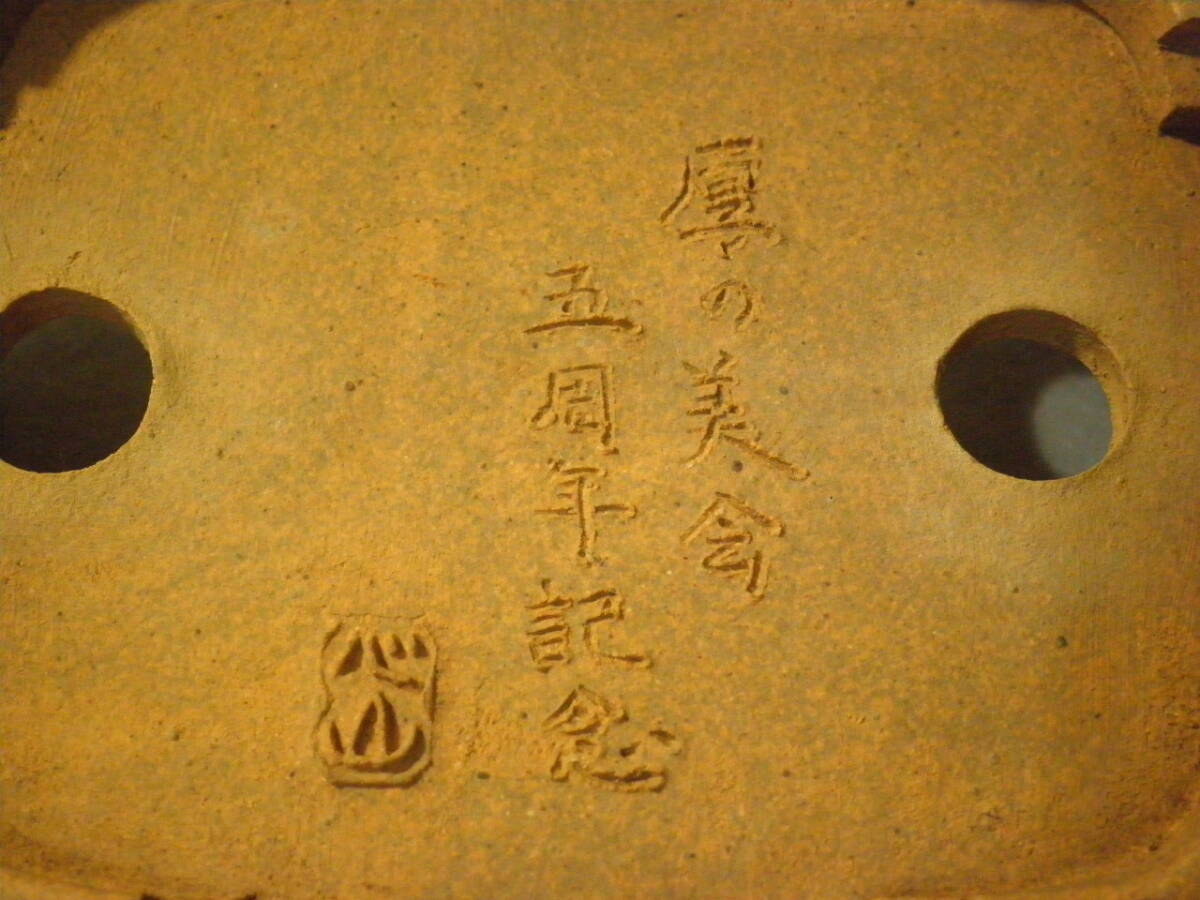 の美会
五周年記念
心山